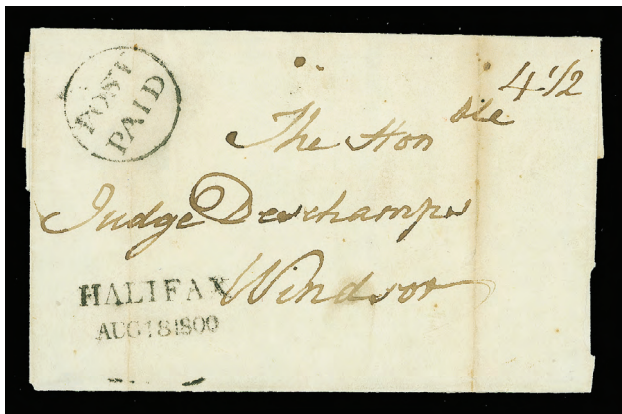 POST
PAID
4 1/2
The Honble
Judge Deschamps
Windsor
HALIFAX
AUG 18 1800